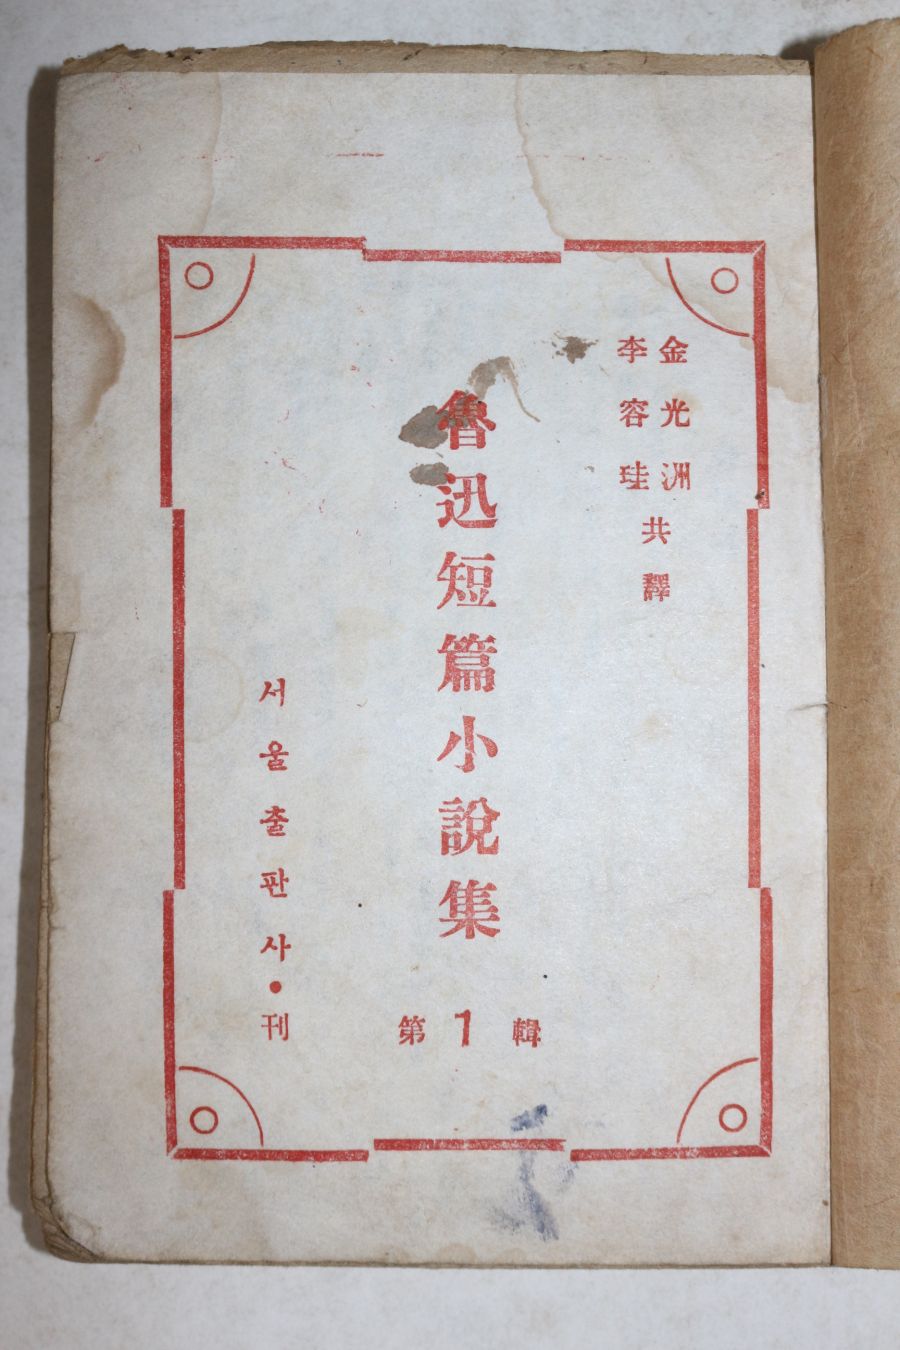 金光洲
李容珪
共譯
魯迅短篇小說集
第1輯
서울출판사•刊